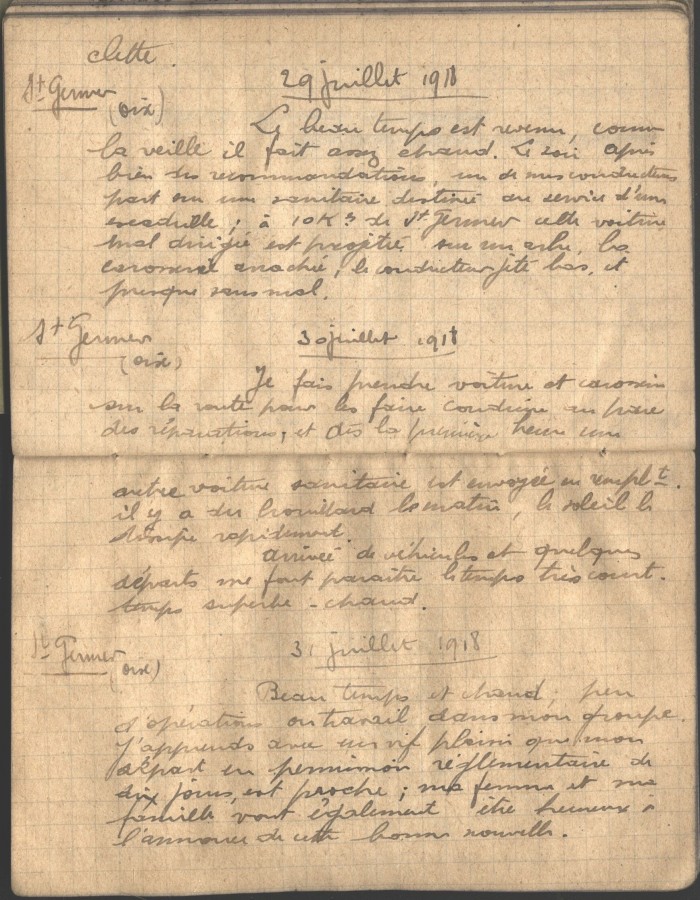 clette.
St Germer
(oise)
29 juillet 1918
Le beau temps est revenu, comme
la veille il fait assez chaud. Le soir après
bien des recommandations, un de mes conducteurs
part sur une sanitaire destinée au service d'une
escadrille ; à 10 Ks de St Germer cette voiture
mal dirigée est projetée sur un arbre, la
carosserie arrachée, le conducteur jeté bas, et
presque sans mal.
St Germer
(oise)
30 juillet 1918
Je fais prendre voiture et carosserie
sur la route pour les faire conduire au parc
des réparations, et dès la première heure une
autre voiture sanitaire est envoyée en remplt.
il y a du brouillard le matin, le soleil le
dissipe rapidement.
Arrivée de véhicules et quelques
départs me font paraître le temps très court.
temps superbe - chaud.
St Germer
(oise)
31 juillet 1918
Beau temps et chaud, peu
d'opérations ou travail dans mon groupe.
J'apprends avec un vif plaisir que mon
départ en permission réglementaire de
dix jours, est proche ; ma femme et ma
famille vont également être heureux à
l'annonce de cette bonne nouvelle.